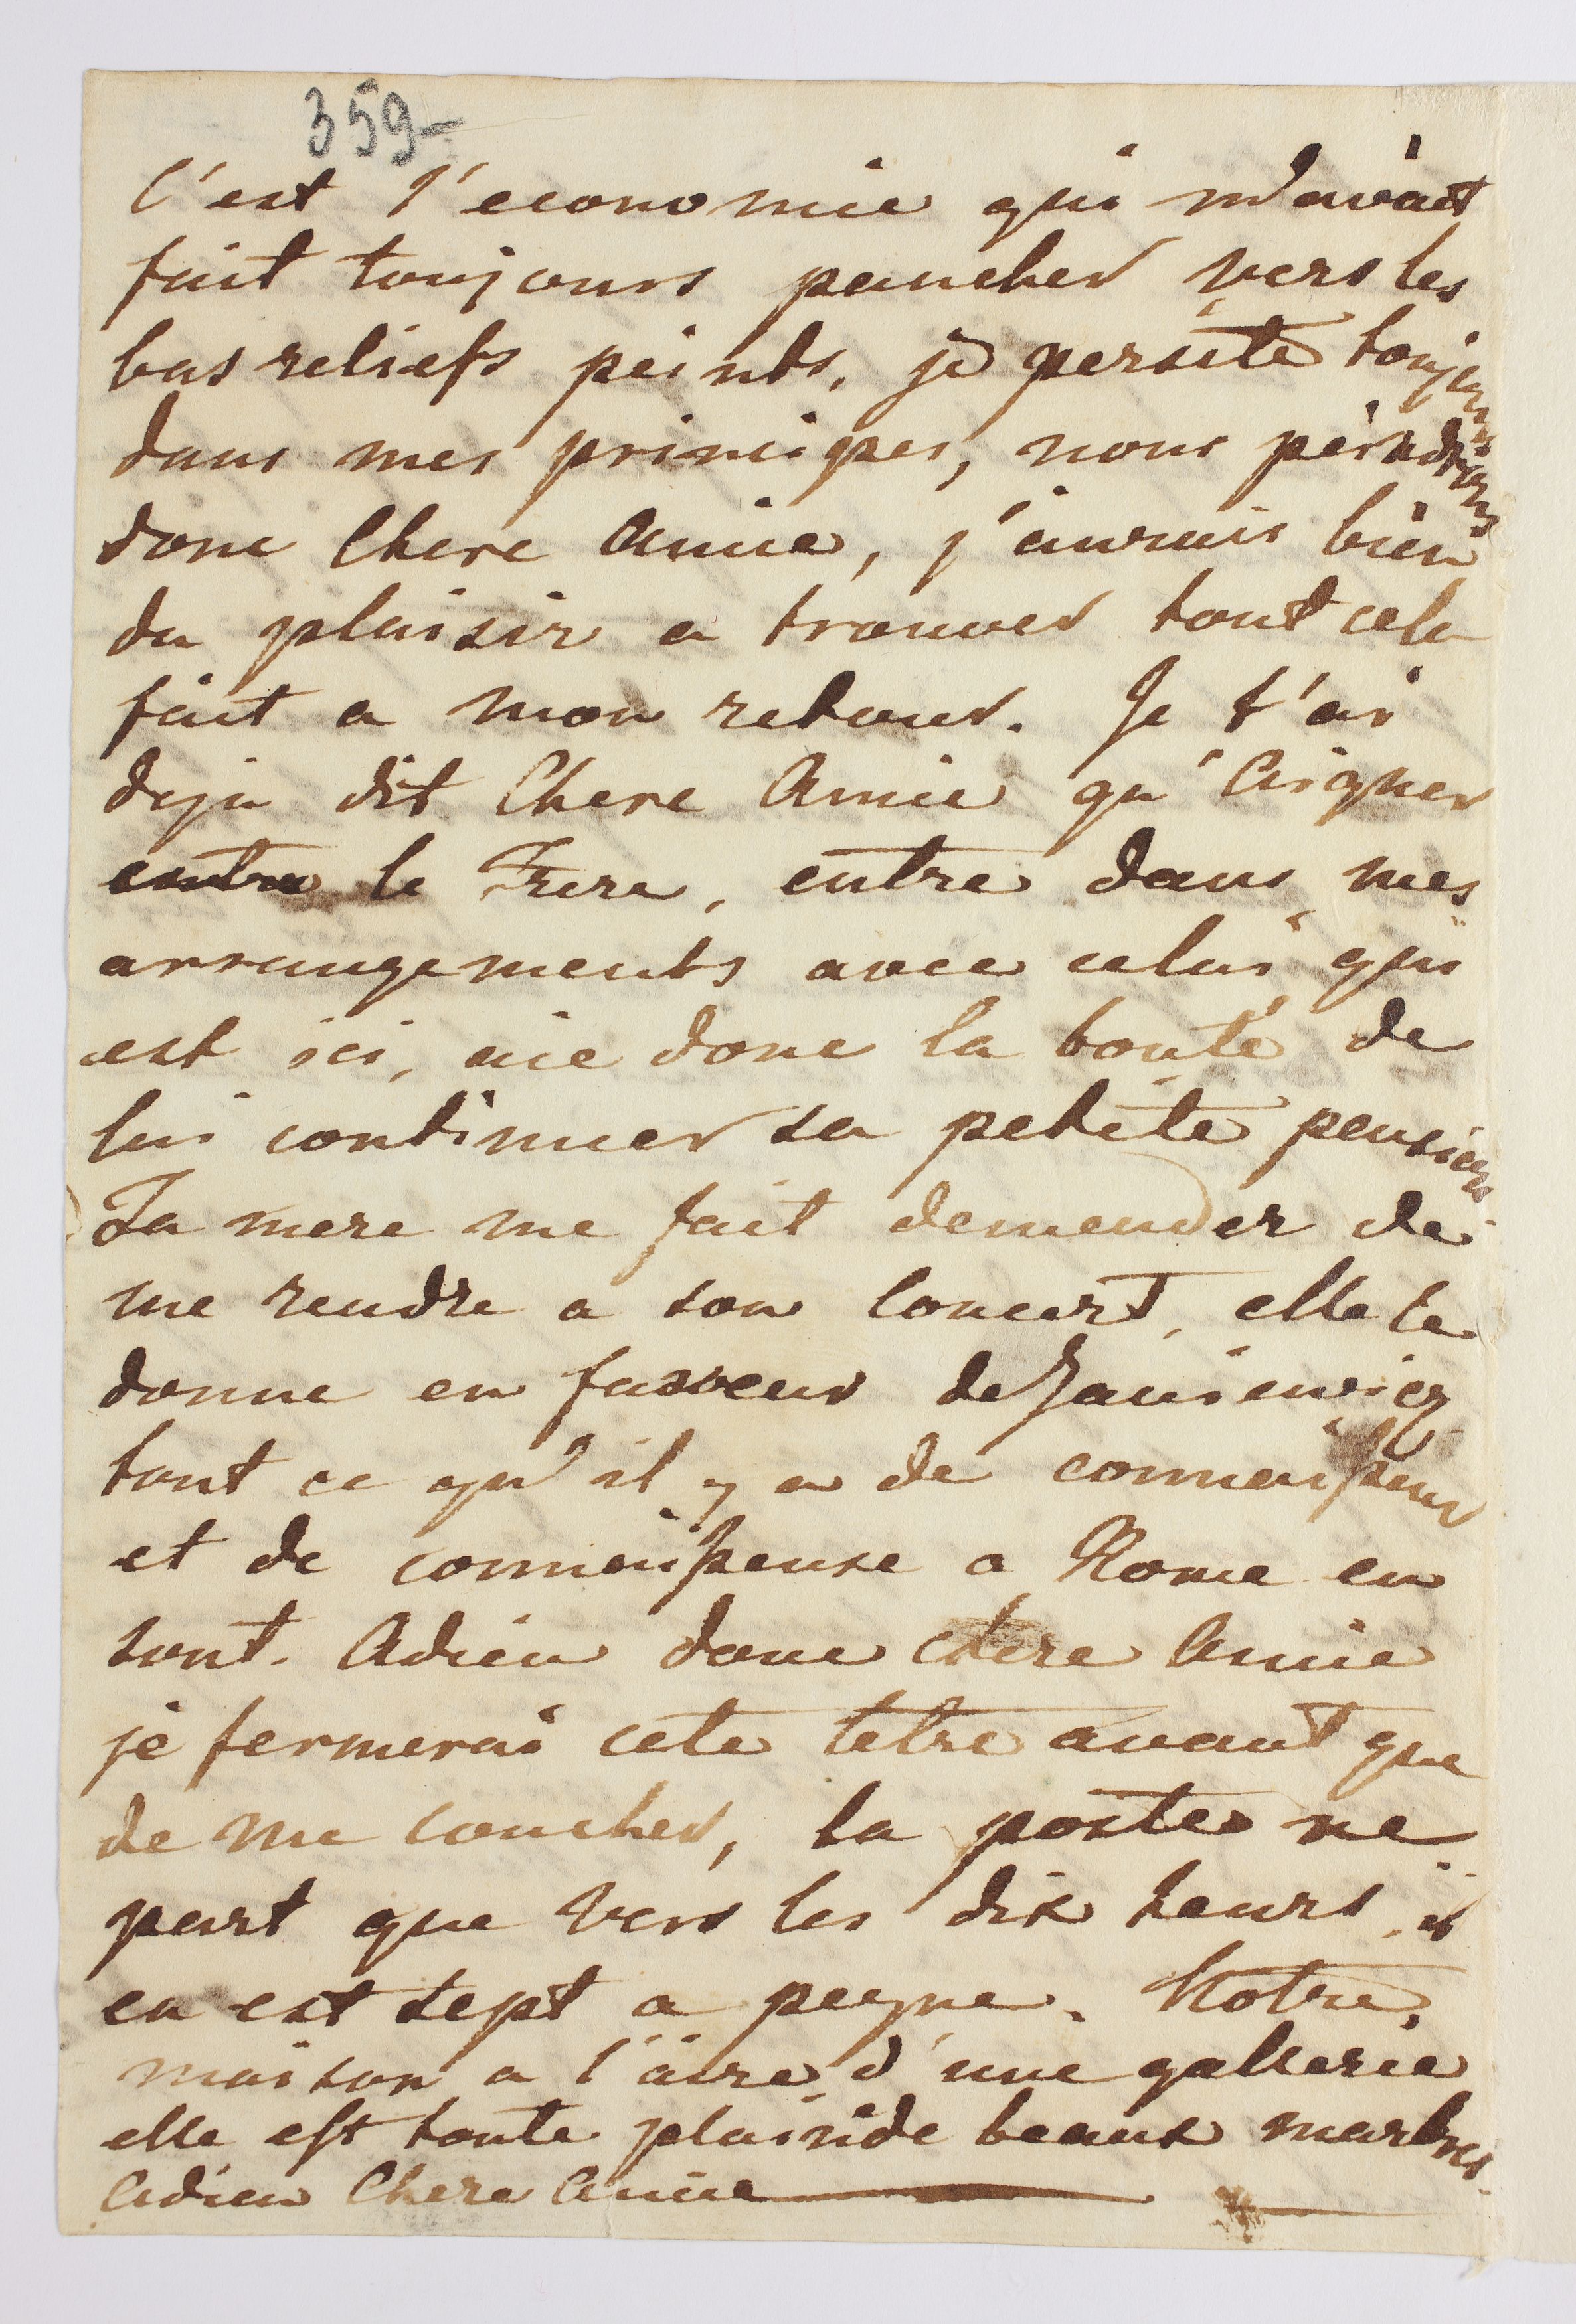 359-
C'est l'economie qui m'avait
fait toujours pancher vers les
bas reliefs peints. je persite toujours
dans mes principes, nous peindrons
donc Chere Amie, j'aurais bien
du plaisir a trouver tout cela
fait a mon retour. Je t'ai
deja dit Chere Amie qu'Aigner
entre le Frere, entre dans mes
arrangements avec celui qui
est ici, aie donc la bonté de
lui continuer sa petite pension
Ta mere me fait demender de
me rendre a son Concert, elle le
donne en faveur de Janiewicz
tout ce qu'il y a de connaisseur
et de connaisseuse a Rome en
sont. Adieu donc chere Amie
je fermerai cete letre avant que
de me coucher, la poste ne
part que vers les dix heurs, il
en est sept a peyne. Notre
maison a l'aire d'une gallerie
elle est toute plaine de beaux marbres.
Adieu Chere Amie